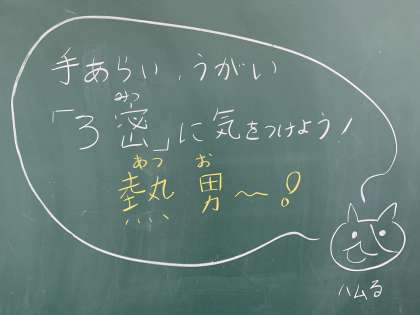 手あらい、うがい
みつ
「3密」に気をつけよう!
あつ お
熱男〜!
ハムる